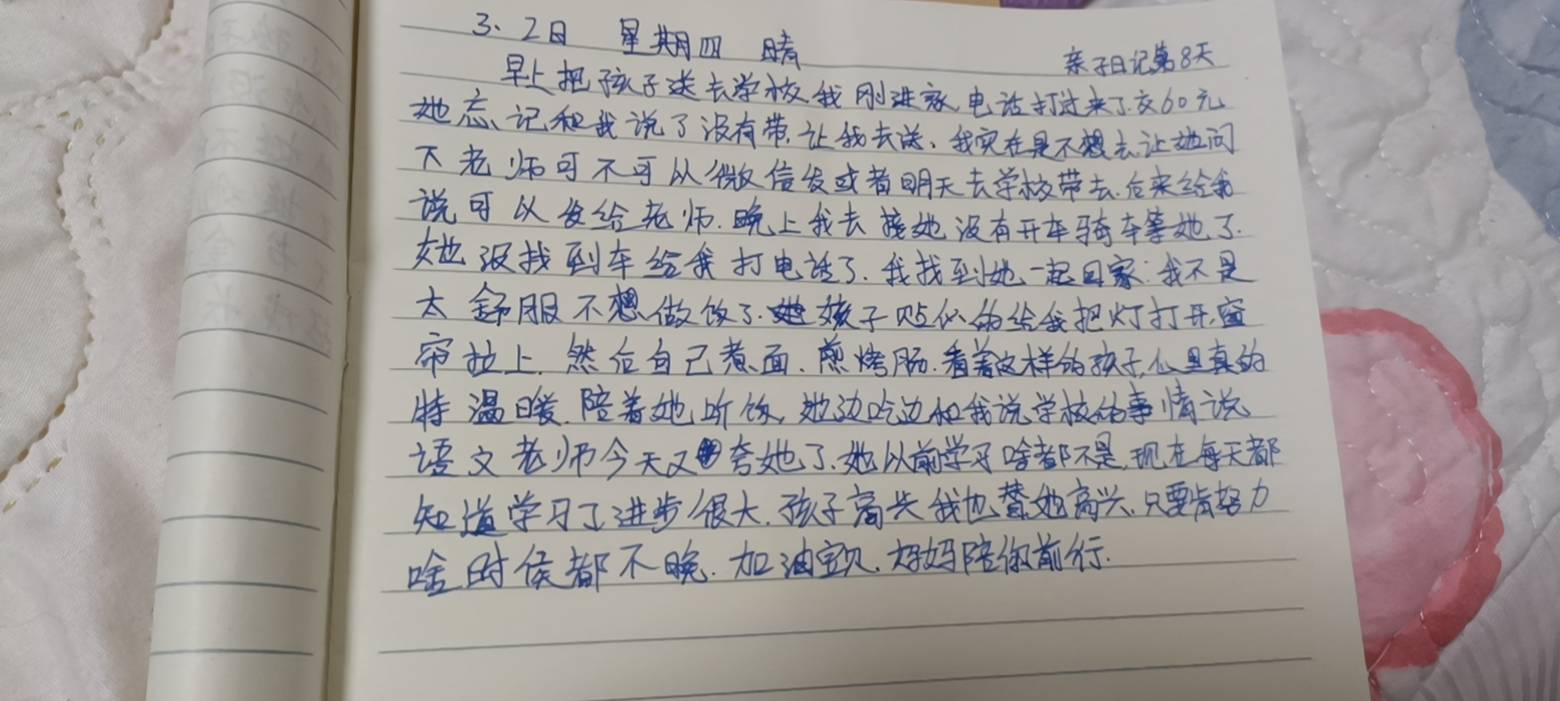 3、2日 星期四 晴
亲子日记第8天
早上把孩子送去学校,我刚进家,电话打过来了,交60元
她忘记和我说了没有带,让我去送、我实在是不想去让她问
下老师可不可以微信发或者明天去学校带去.后来给我
说可以发给老师.晚上我去接她没有开车骑车等她了.
她没找到车给我打电话了.我找到她一起回家.我不是
太舒服不想做饭了.孩子贴似的给我把灯打开,窗
帘拉上.然后自己煮面.煎烤肠.看着这样的孩子,心里真的
特温暖.陪着她吃饭,她边吃边和我说学校的事情说
语文老师今天又夸她了.她以前学习啥都不是,现在每天都
知道学习了进步很大.孩子高兴我也替她高兴.只要肯努力
啥时侯都不晚.加油宝贝.妈妈陪你前行.